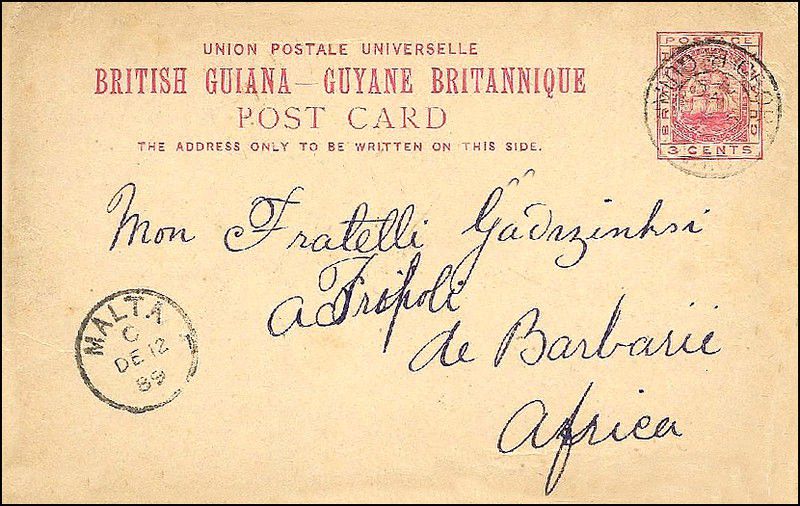 UNION POSTALE UNIVERSELLE
BRITISH GUIANA — GUYANE BRITANNIQUE
POST CARD
THE ADDRESS ONLY TO BE WRITTEN ON THIS SIDE.
POSTAGE
3 CENTS
Mon Fratelli
a Tripoli
de Barbarie
Africa
MALTA
C
DE 12
89